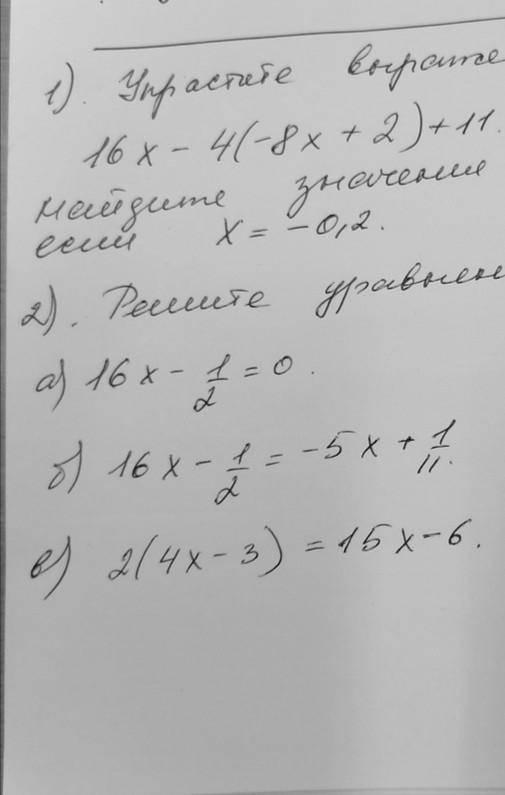 1). Упрастите выраже
16x - 4(-8x + 2) + 11.
найдите значение
если x = -0,2.
2). Решите уравнен
а) 16x - 1/2 = 0.
б) 16x - 1/2 = -5x + 1/11.
в) 2(4x - 3) = 15x - 6.